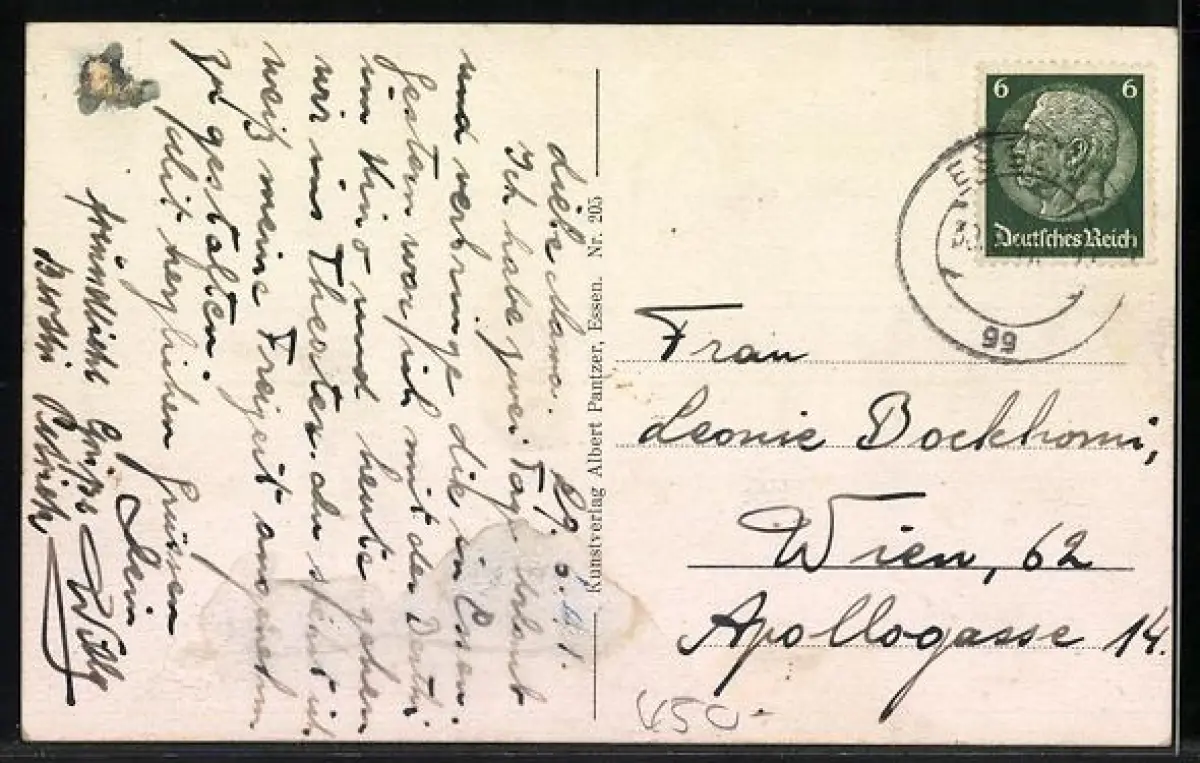 Liebe Mama. 29. 3. 41.
Ich habe zwei Tage Urlaub
und verbringe die in Essen.
Gestern war ich mit der Berthi
im Kino und heute gehen
wir ins Theater. du siehst ich
weiß meine Freizeit angenehm
zu gestalten.
Mit herzlichen Grüssen
Dein Willy
freundliche Grüße
Berthi
Kunstverlag Albert Pantzer, Essen. Nr. 205
6 6
Deutsches Reich
ESSEN
99
Frau
Leonie Bockhorni,
Wien, 62
Apollogasse 14.
450-